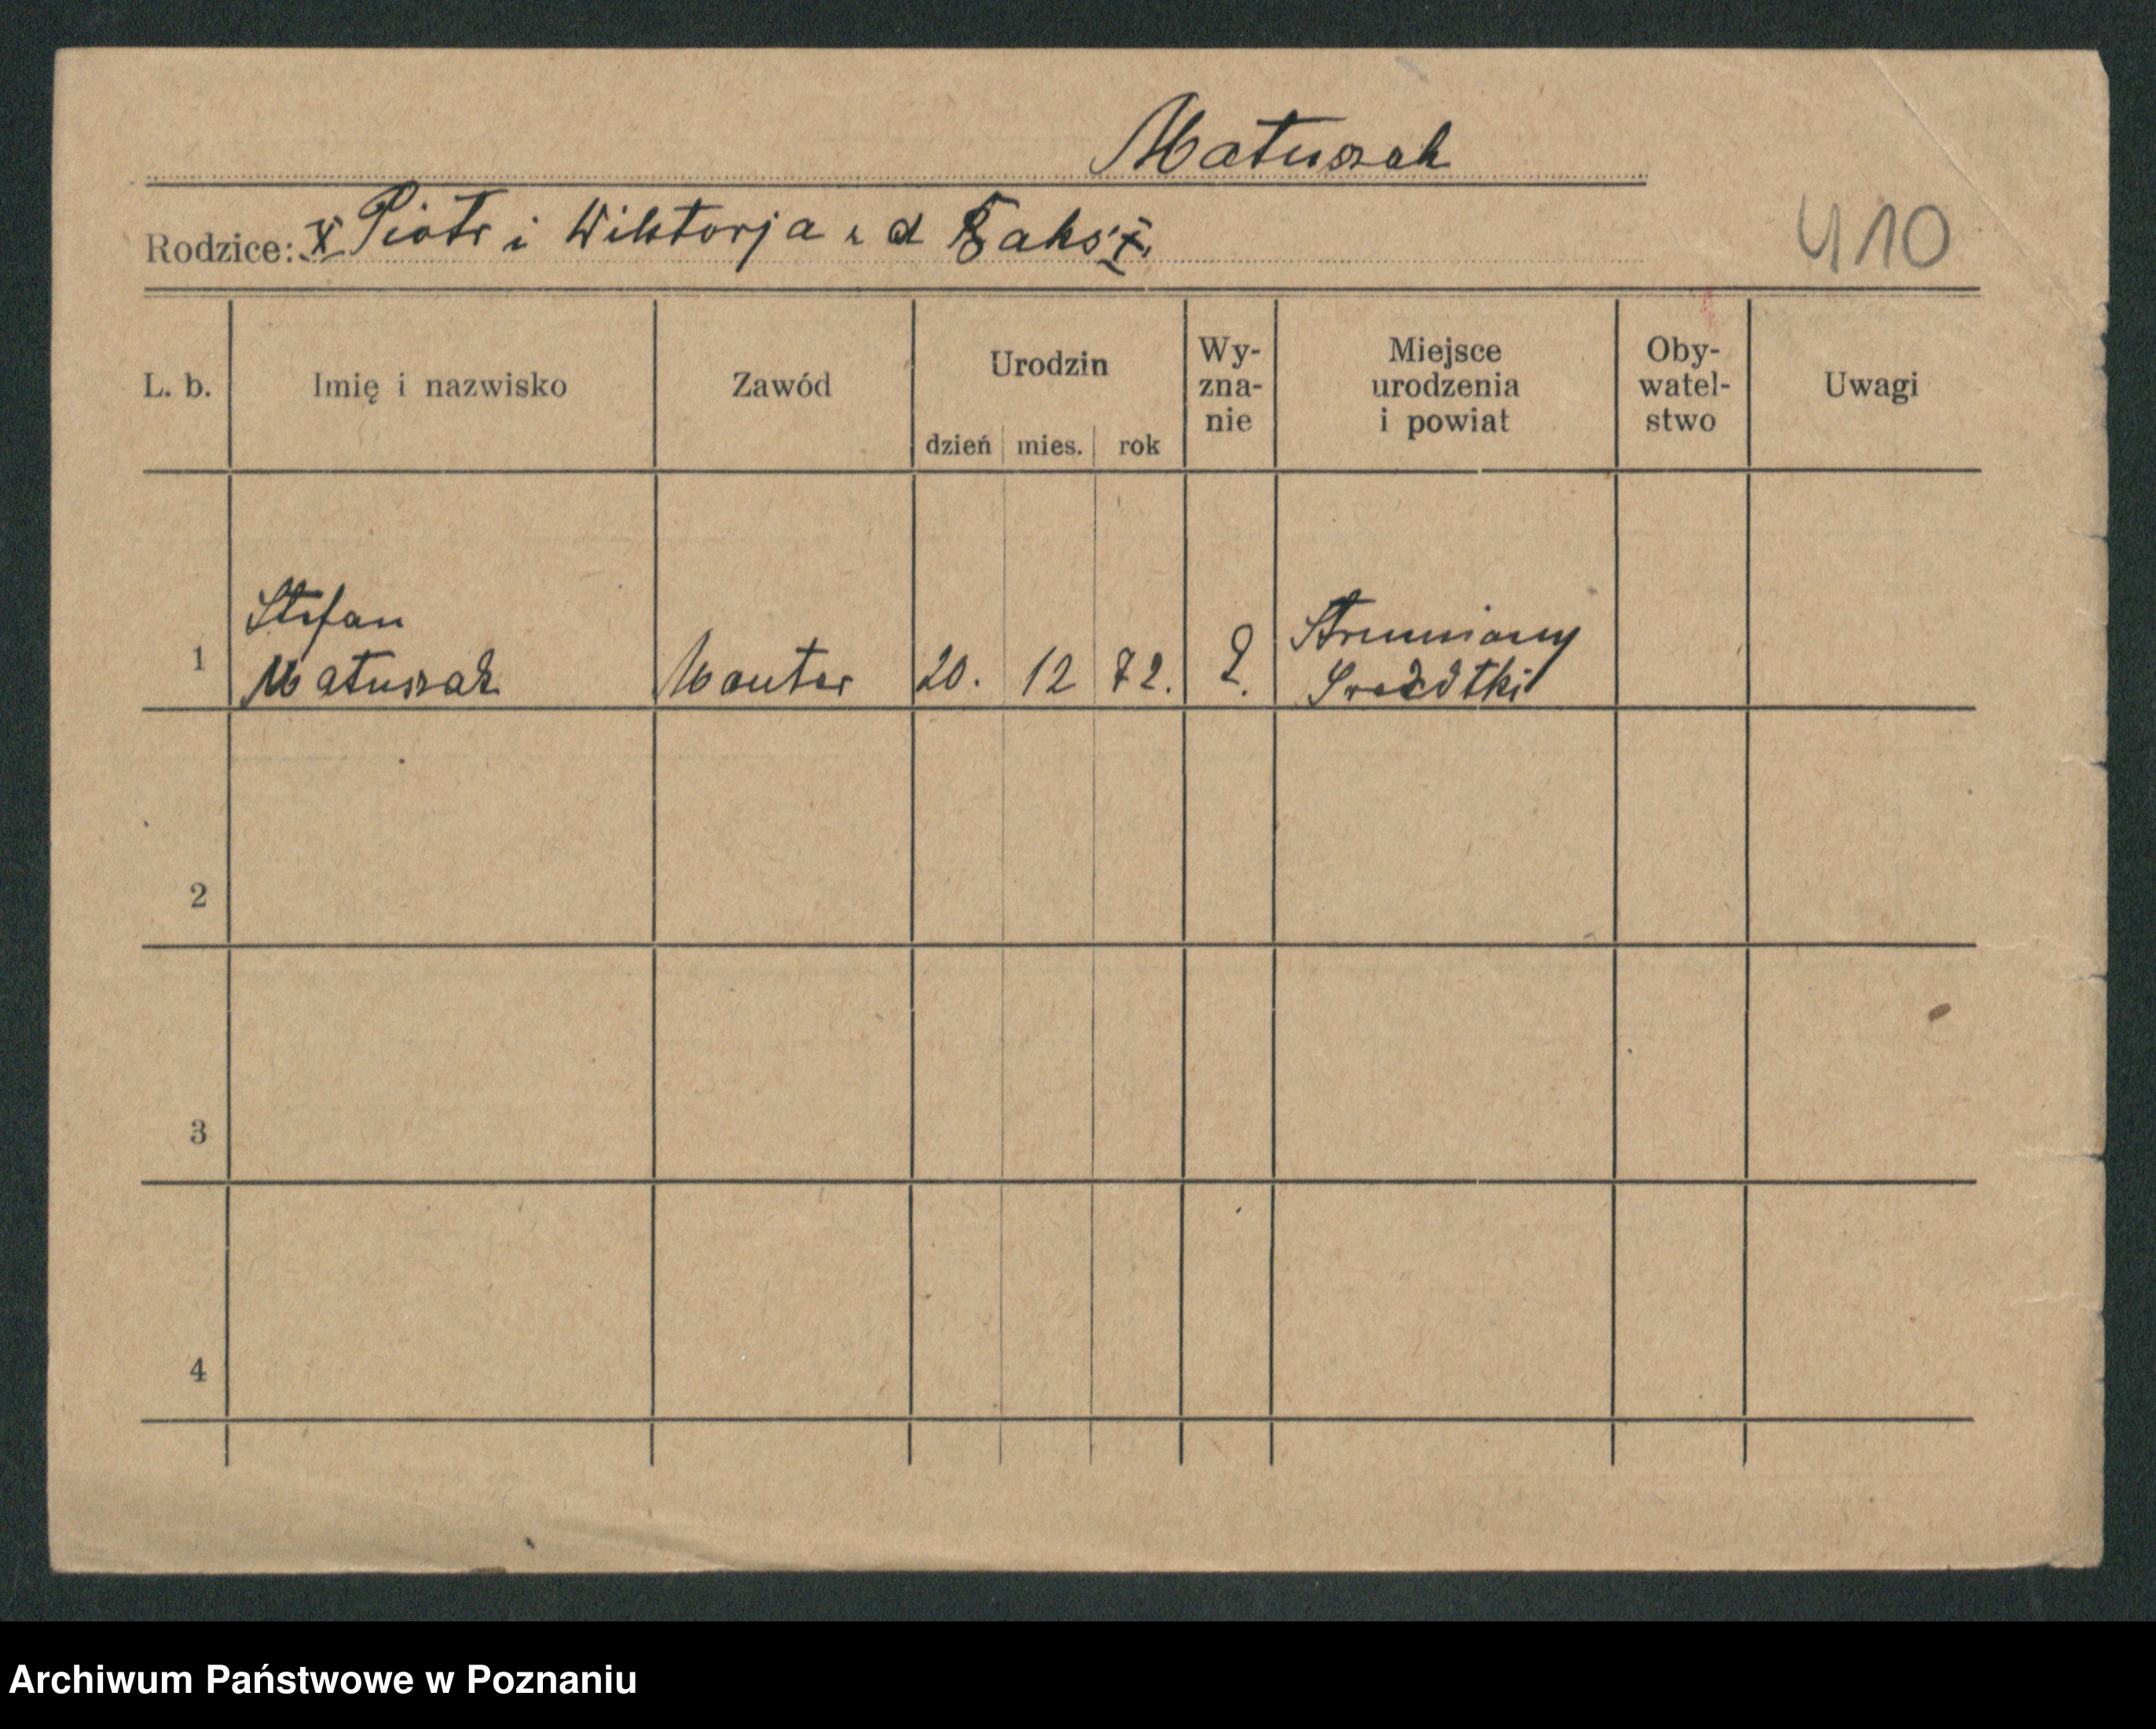 Matuszak
Rodzice: x Piotr i Wiktorja z d
410
L. b. Imię i nazwisko Zawód Urodzin dzień mies. rok Wy-znanie Miejsce urodzenia i powiat Oby-watel-stwo Uwagi
Stefan
1 Matuszak Monter 20. 12 72. Strumiany
2
3
4
Archiwum Państwowe w Poznaniu